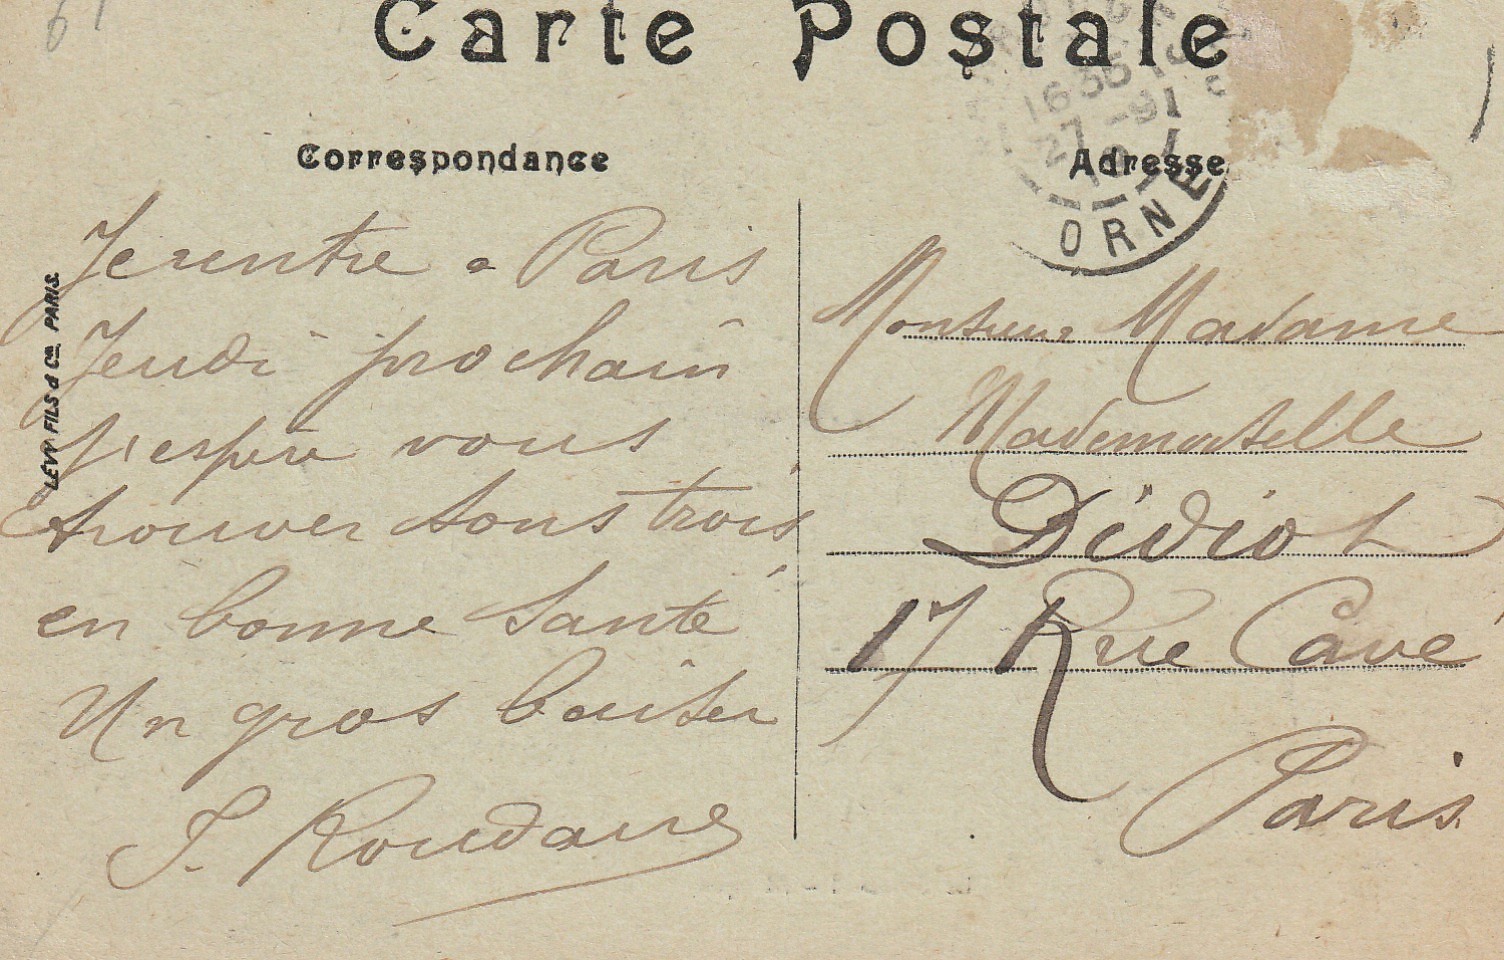 Carte Postale
Correspondance
Adresse
16 35
27 -9
ORNE
LÉVY FILS & Cie, PARIS.
Je rentre a Paris
Jeudi prochain
J'espère vous
trouver tous trois
en bonne santé
Un gros baiser
Monsieur Madame
Mademoiselle
Didiot
17 Rue Cavé
Paris